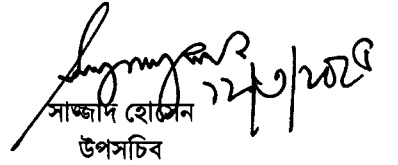 ১২/৩/২০২৫
সাজ্জাদ হোসেন
উপসচিব